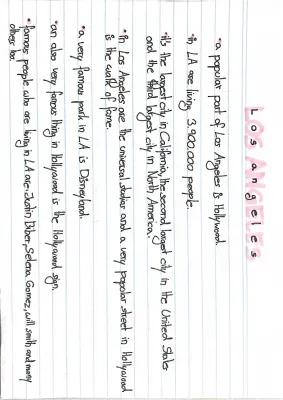 LOS ANGELES
Los angeles
• a popular part of Los Angeles is Hollywood.
• in LA are living 3.900.000 people.
• it's the largest city in California, the second largest city in the United States
and the third largest city in North America.
• in Los Angeles are the universal studios and a very popular street in Hollywood
is the walk of fame.
• a very famous park in LA is Disneyland.
• an also very famous thing in Hollywood is the Hollywood sign.
• famous people who are living in LA are: Justin Biber, Selena Gomez, will smith and many
others too.